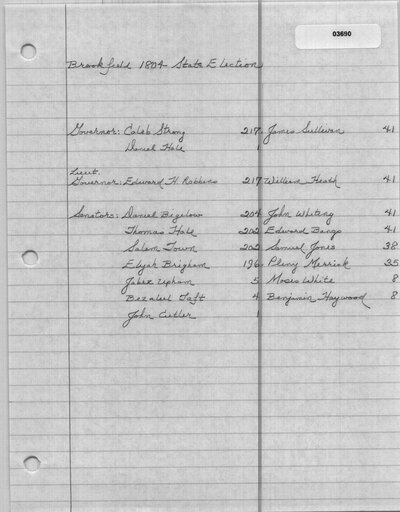 03690
Brookfield 1804 State Election
Governor: Caleb Strong 217 James Sullivan 41
Daniel Hale 1
Lieut.
Governor: Edward H. Robbins 217 William Heath 41
Senators: Daniel Bigelow 204 John Whiting 41
Thomas Hale 202 Edward Bangs 41
Salem Town 202 Samuel Jones 38
Elijah Brigham 196 Pliny Merrick 35
Jabez Upham 5 Moses White 8
Bezaleel Taft 4 Benjamin Haywood 8
John Cutler 1